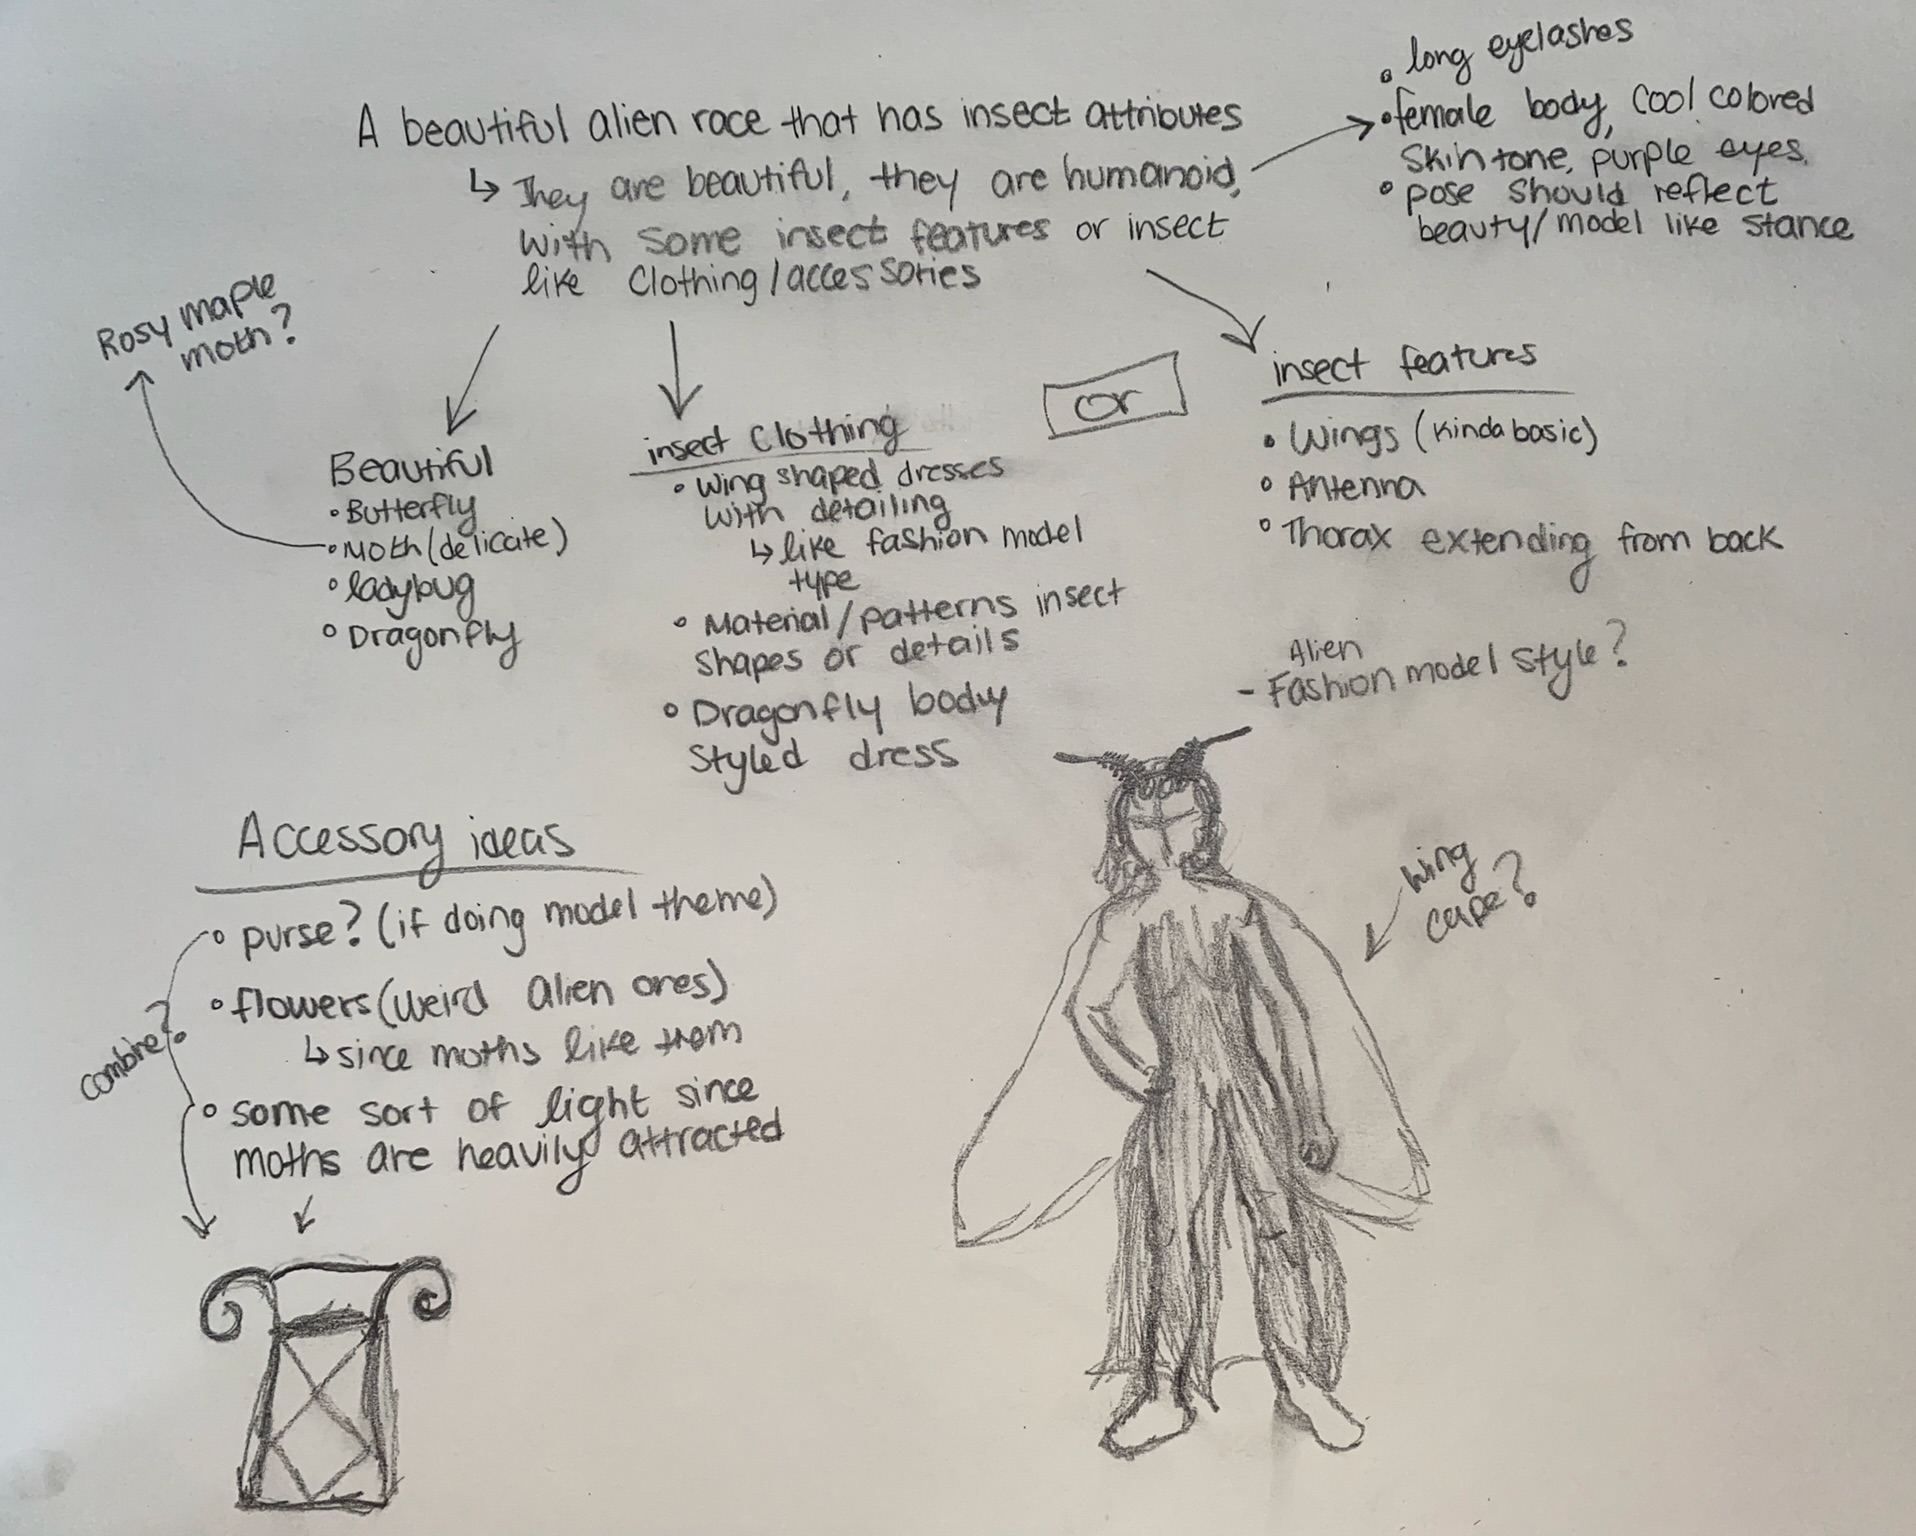 A beautiful alien race that has insect attributes
↳ They are beautiful, they are humanoid,
with some insect features or insect
like clothing/accessories
• long eyelashes
• female body, cool colored
skin tone, purple eyes.
• pose should reflect
beauty/model like stance
Rosy maple
moth?
Beautiful
• Butterfly
• Moth (delicate)
• ladybug
• Dragonfly
insect clothing
• Wing shaped dresses
with detailing
↳ like fashion model
type
• Material/patterns insect
shapes or details
• Dragonfly body
styled dress
or
insect features
• Wings (kinda basic)
• Antenna
• Thorax extending from back
Alien
- Fashion model style?
Accessory ideas
• purse? (if doing model theme)
• flowers (weird alien ones)
↳ since moths like them
• some sort of light since
moths are heavily attracted
combine?
wing
cape?